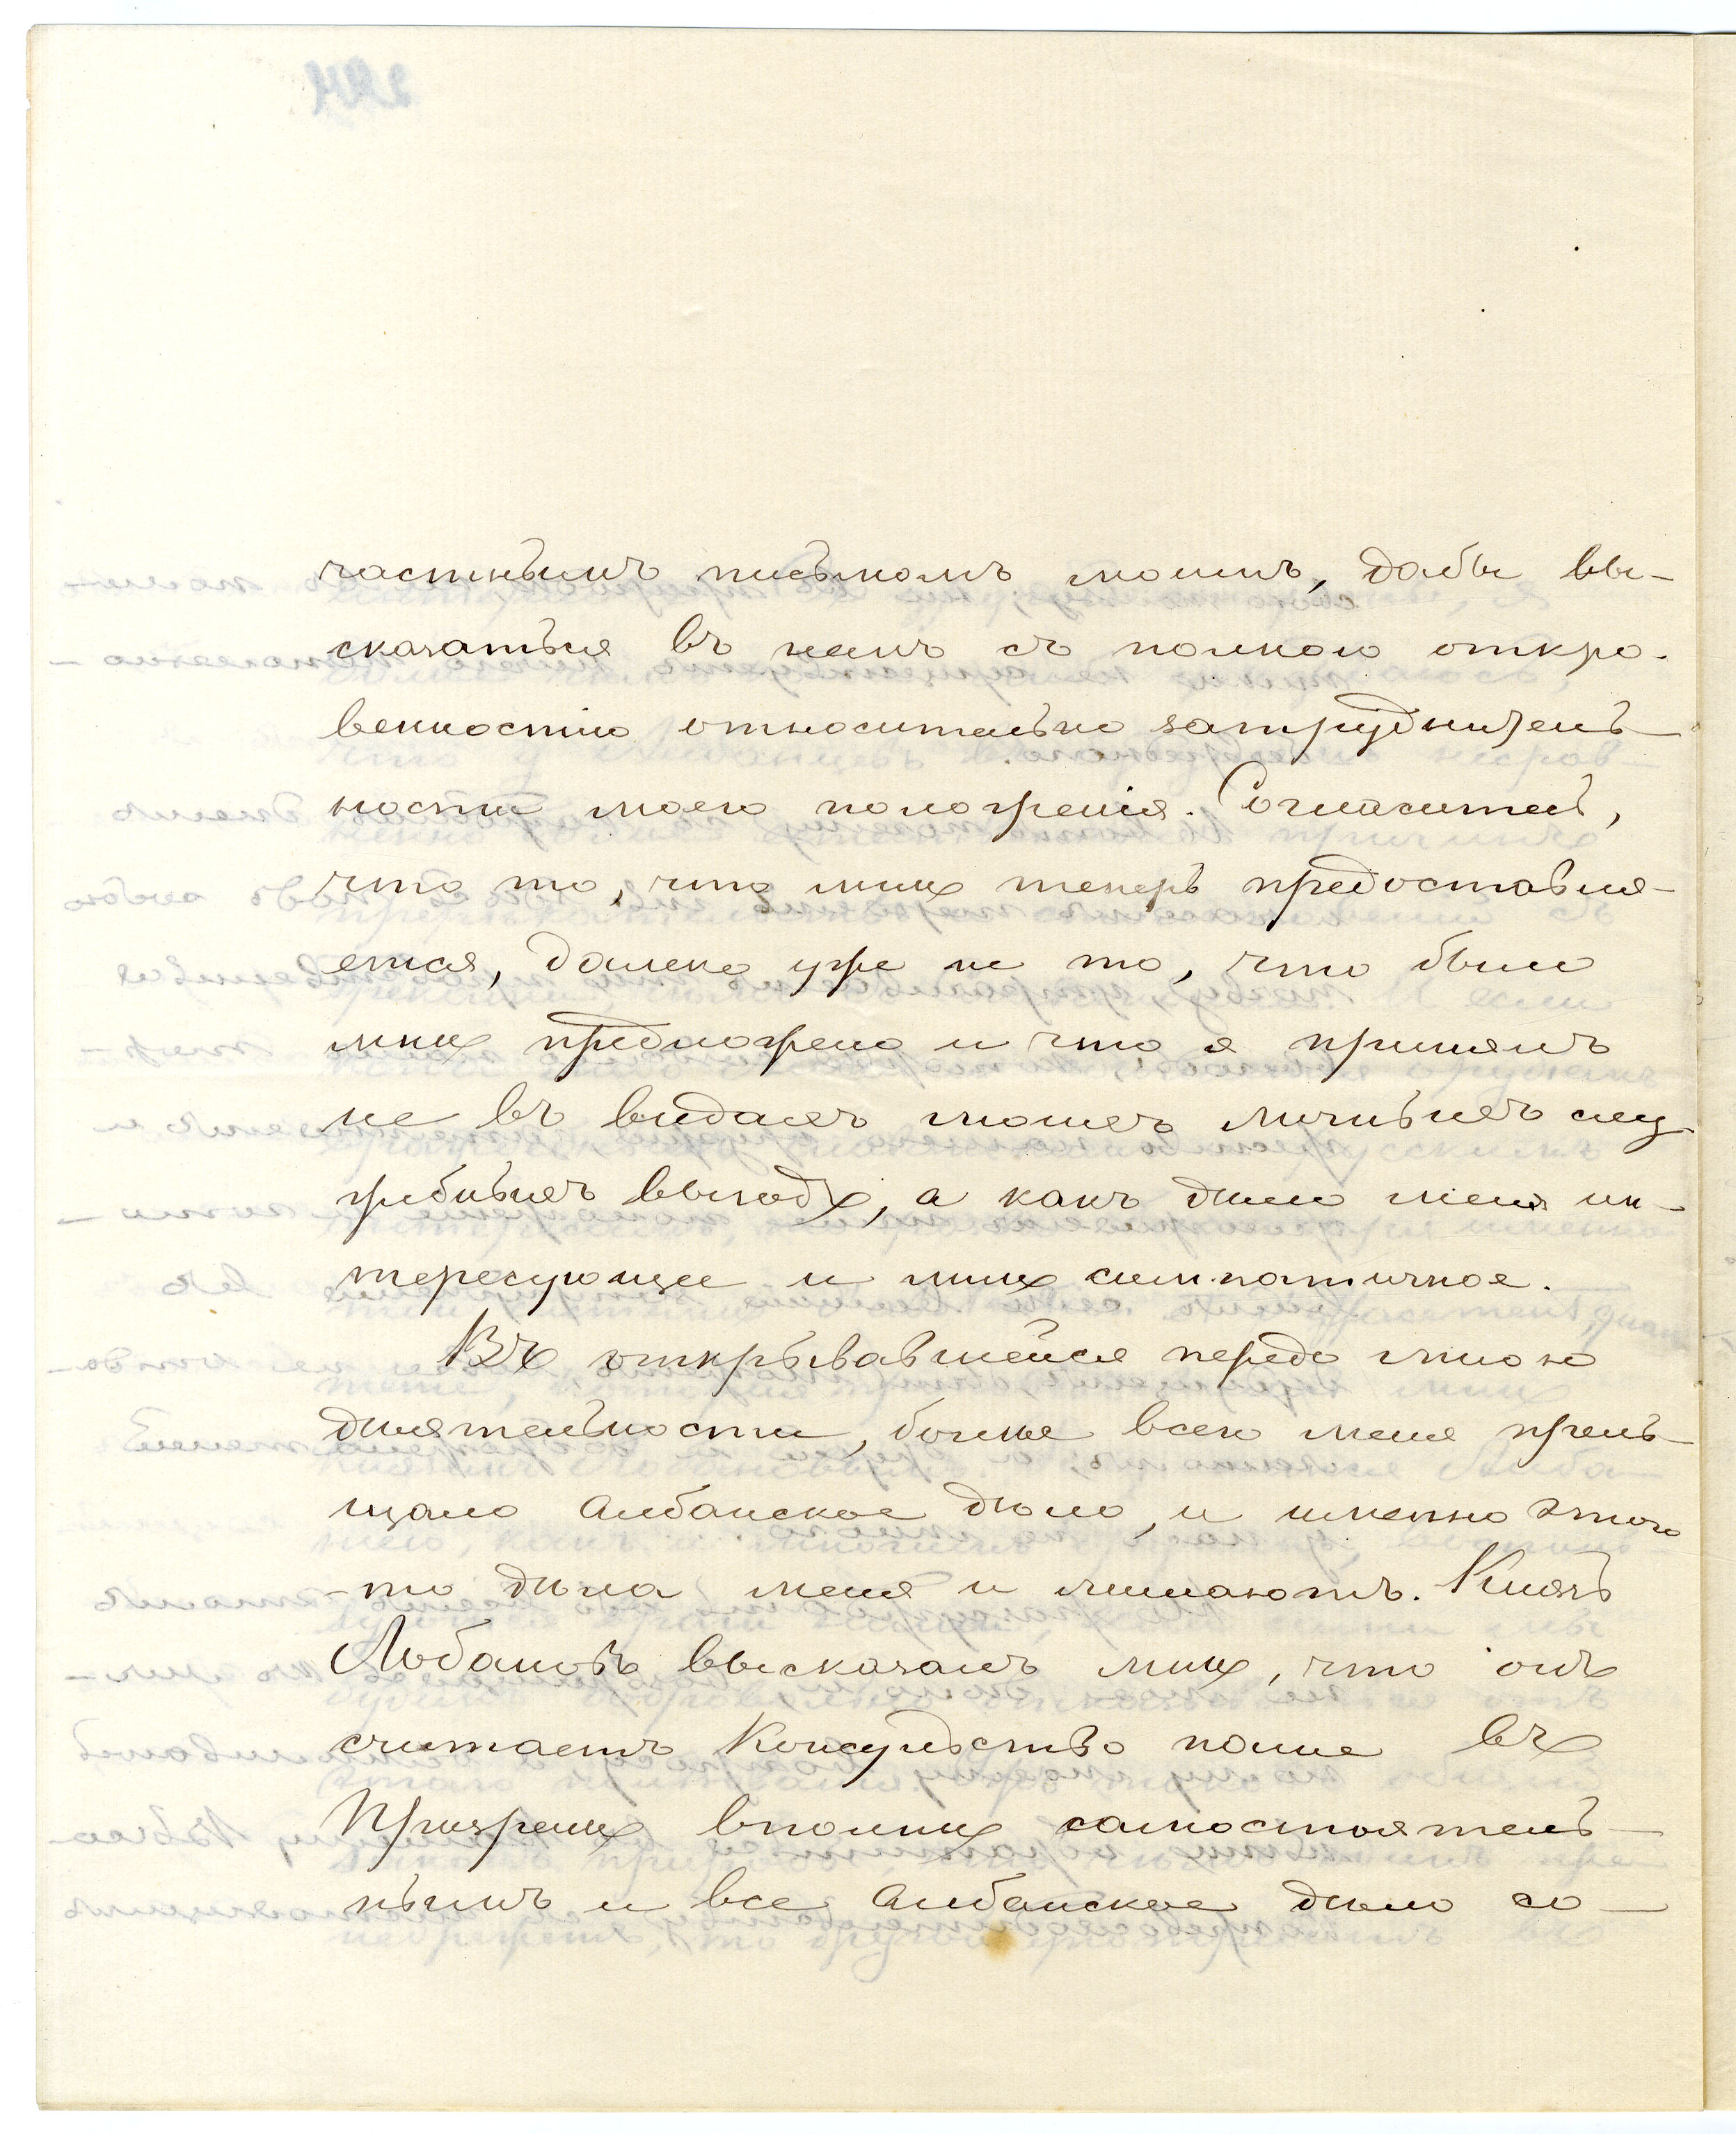 частнымъ письмомъ моимъ, дабы вы-
сказаться въ немъ съ полною откро-
венностію относительно затруднитель-
ности моего положенія. Согласитесь,
что то, что мнѣ теперь предоставля-
ется, далеко уже не то, что было
мнѣ предложено и что я принялъ
не въ видахъ моихъ личныхъ слу-
жебныхъ выгодъ, а какъ дѣло меня ин-
тересующее и мнѣ симпатичное.
Въ открывавшейся передо мною
дѣятельности, болѣе всего меня прель-
щало Албанское дѣло, и именно этого
-то дѣла меня и лишаютъ. Князь
Лобановъ высказалъ мнѣ, что онъ
считаетъ Консульство наше въ
Призренѣ вполнѣ самостоятель-
нымъ и все Албанское дѣло со-